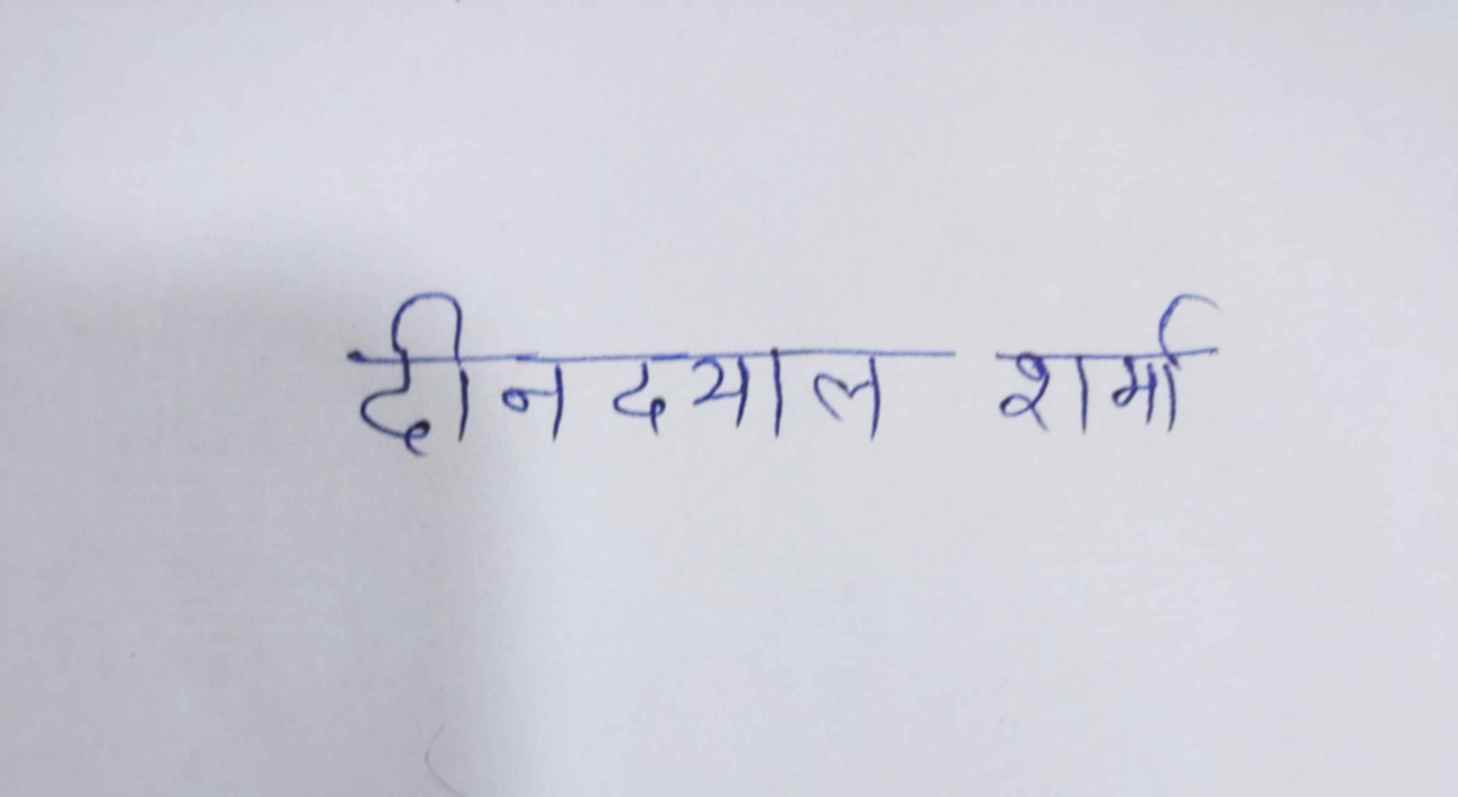 दीनदयाल शर्मा